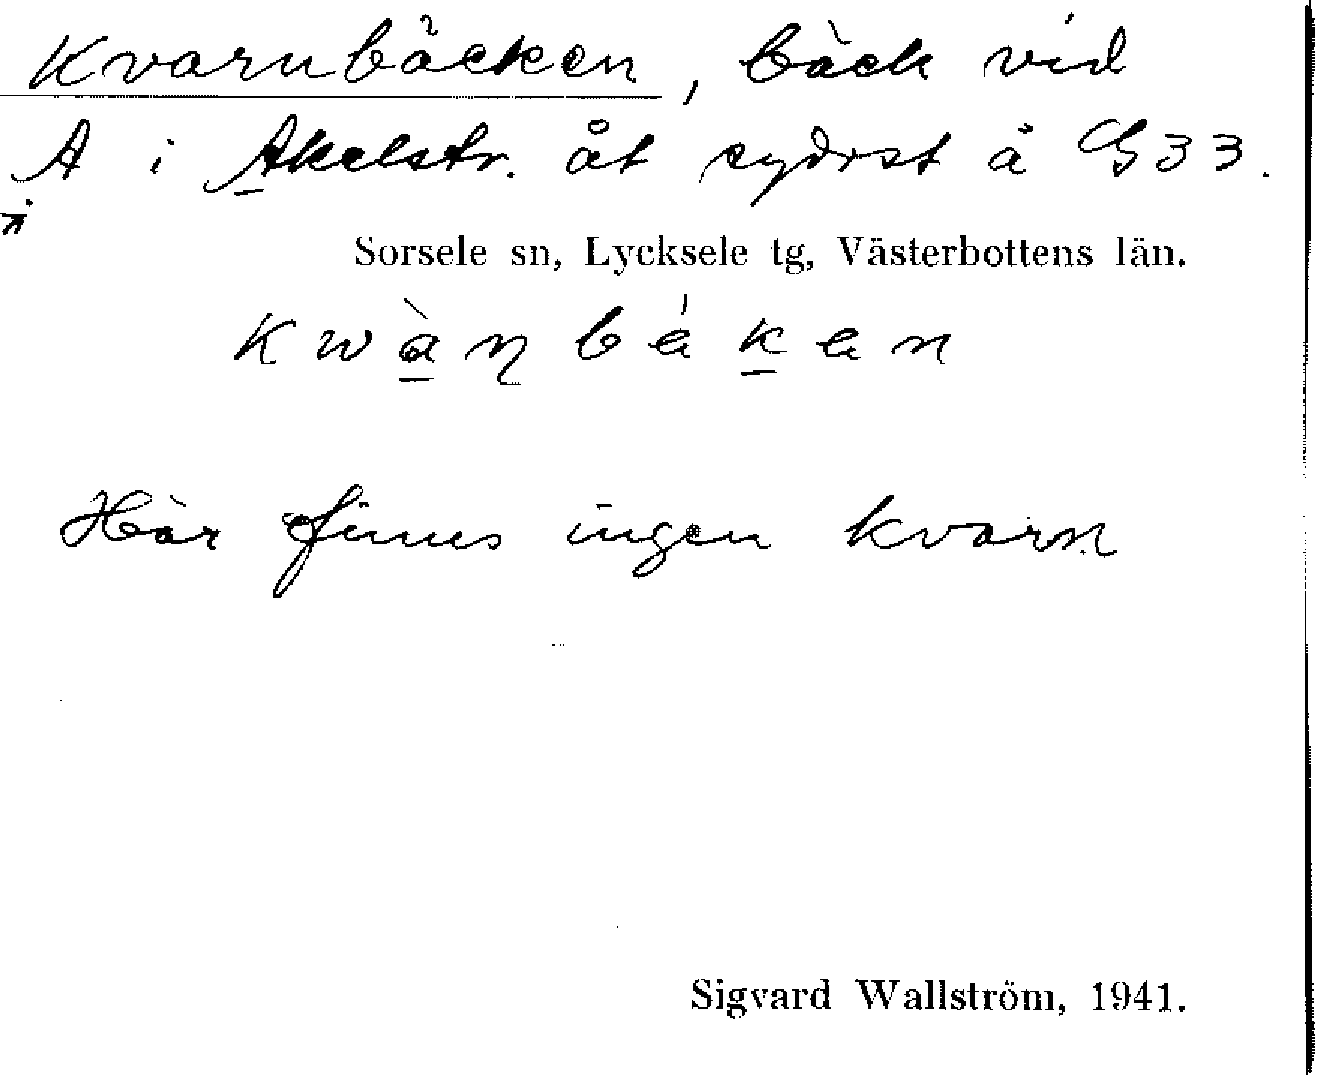 Kvarnbäcken, bäck vid
A i Akelstr. åt sydost å G33.
Sorsele sn, Lycksele tg, Västerbottens län.
Här finns ingen kvarn
Sigvard Wallström, 1941.